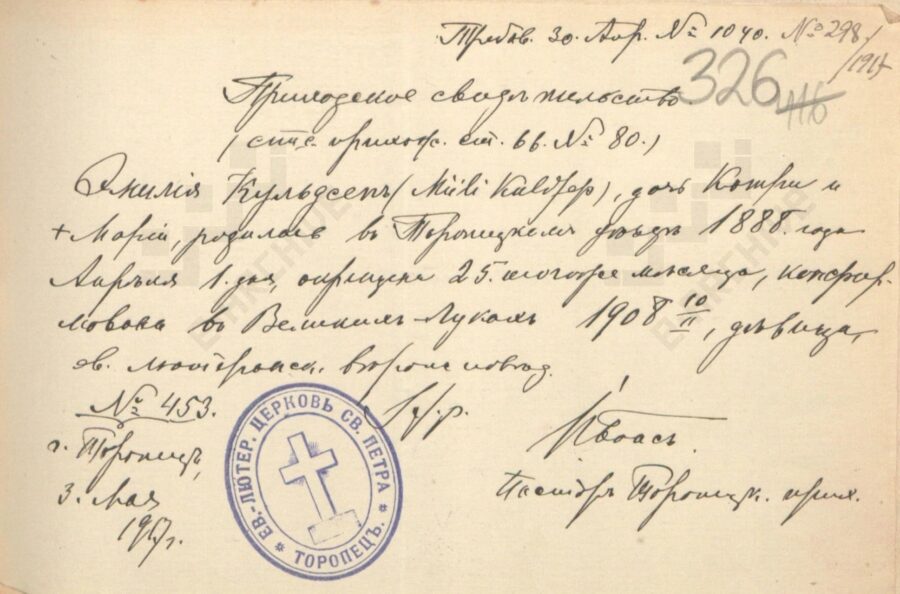 Требов. 30. Апр. № 1040. № 298/1917
326 416
Приходское свидѣтельство
(спис. прихож. ст. bb. № 80.)
Эмилія Кульдсепъ (Miili Kuldsep), дочь и
+ Маріи, родилась въ Торопецкомъ уѣздѣ 1888. года
Апрѣля 1. дня, окрещена 25. того же мѣсяца, конфир-
мована въ Великихъ-Лукахъ 1908 10/II, дѣвица,
ев. лютеранск. вѣроисповѣд.
№ 453.
г. Торопецъ,
3. Мая
1917 г.
ЕВ.-ЛЮТЕР. ЦЕРКОВЬ СВ. ПЕТРА * ТОРОПЕЦЪ. *
Пасторъ Торопецк. прих.